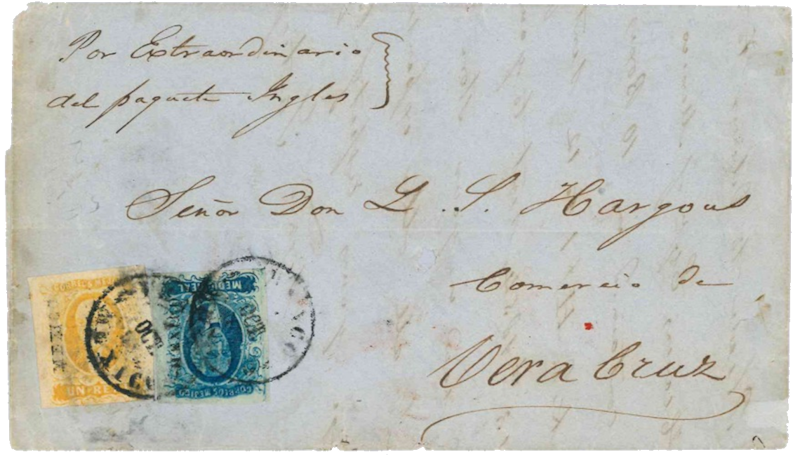 Por Extraordinario
del paquete Ingles
Señor Don L. S. Hargous
Comercio de
Vera Cruz
MEXICO
MEDIO REAL
CORREOS MEXICO